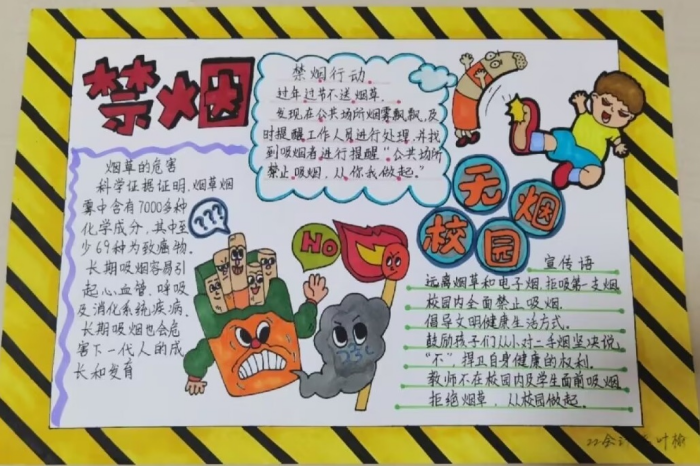 禁烟
禁烟行动
过年过节不送烟草.
发现在公共场所烟雾飘飘,及
时提醒工作人员进行处理,并找
到吸烟者进行提醒“公共场所
禁止吸烟,从你我做起。”
烟草的危害
科学证据证明,烟草烟
雾中含有7000多种
化学成分,其中至
少69种为致癌物.
长期吸烟容易引
起心血管,呼吸
及消化系统疾病.
长期吸烟也会危
害下一代人的成
长和发育
???
NO
无烟
校园
宣传语
远离烟草和电子烟,拒吸第一支烟
校园内全面禁止吸烟.
倡导文明健康生活方式.
鼓励孩子们从小对二手烟坚决说,
“不”,捍卫自身健康的权利.
教师不在校园内及学生面前吸烟
拒绝烟草,从校园做起.
叶榆